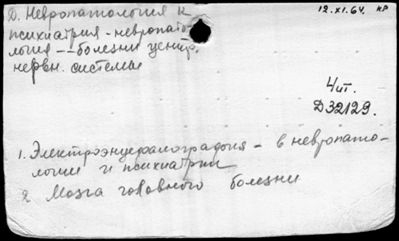 Д. Невропатология и
психиатрия - невропато-
логия -- болезни центр.
нервн. системы
12.XI.64. кр
4 чт.
Д32129.
1. Электроэнцефалография - в невропато-
логии и психиатрии
2 Мозга головного болезни